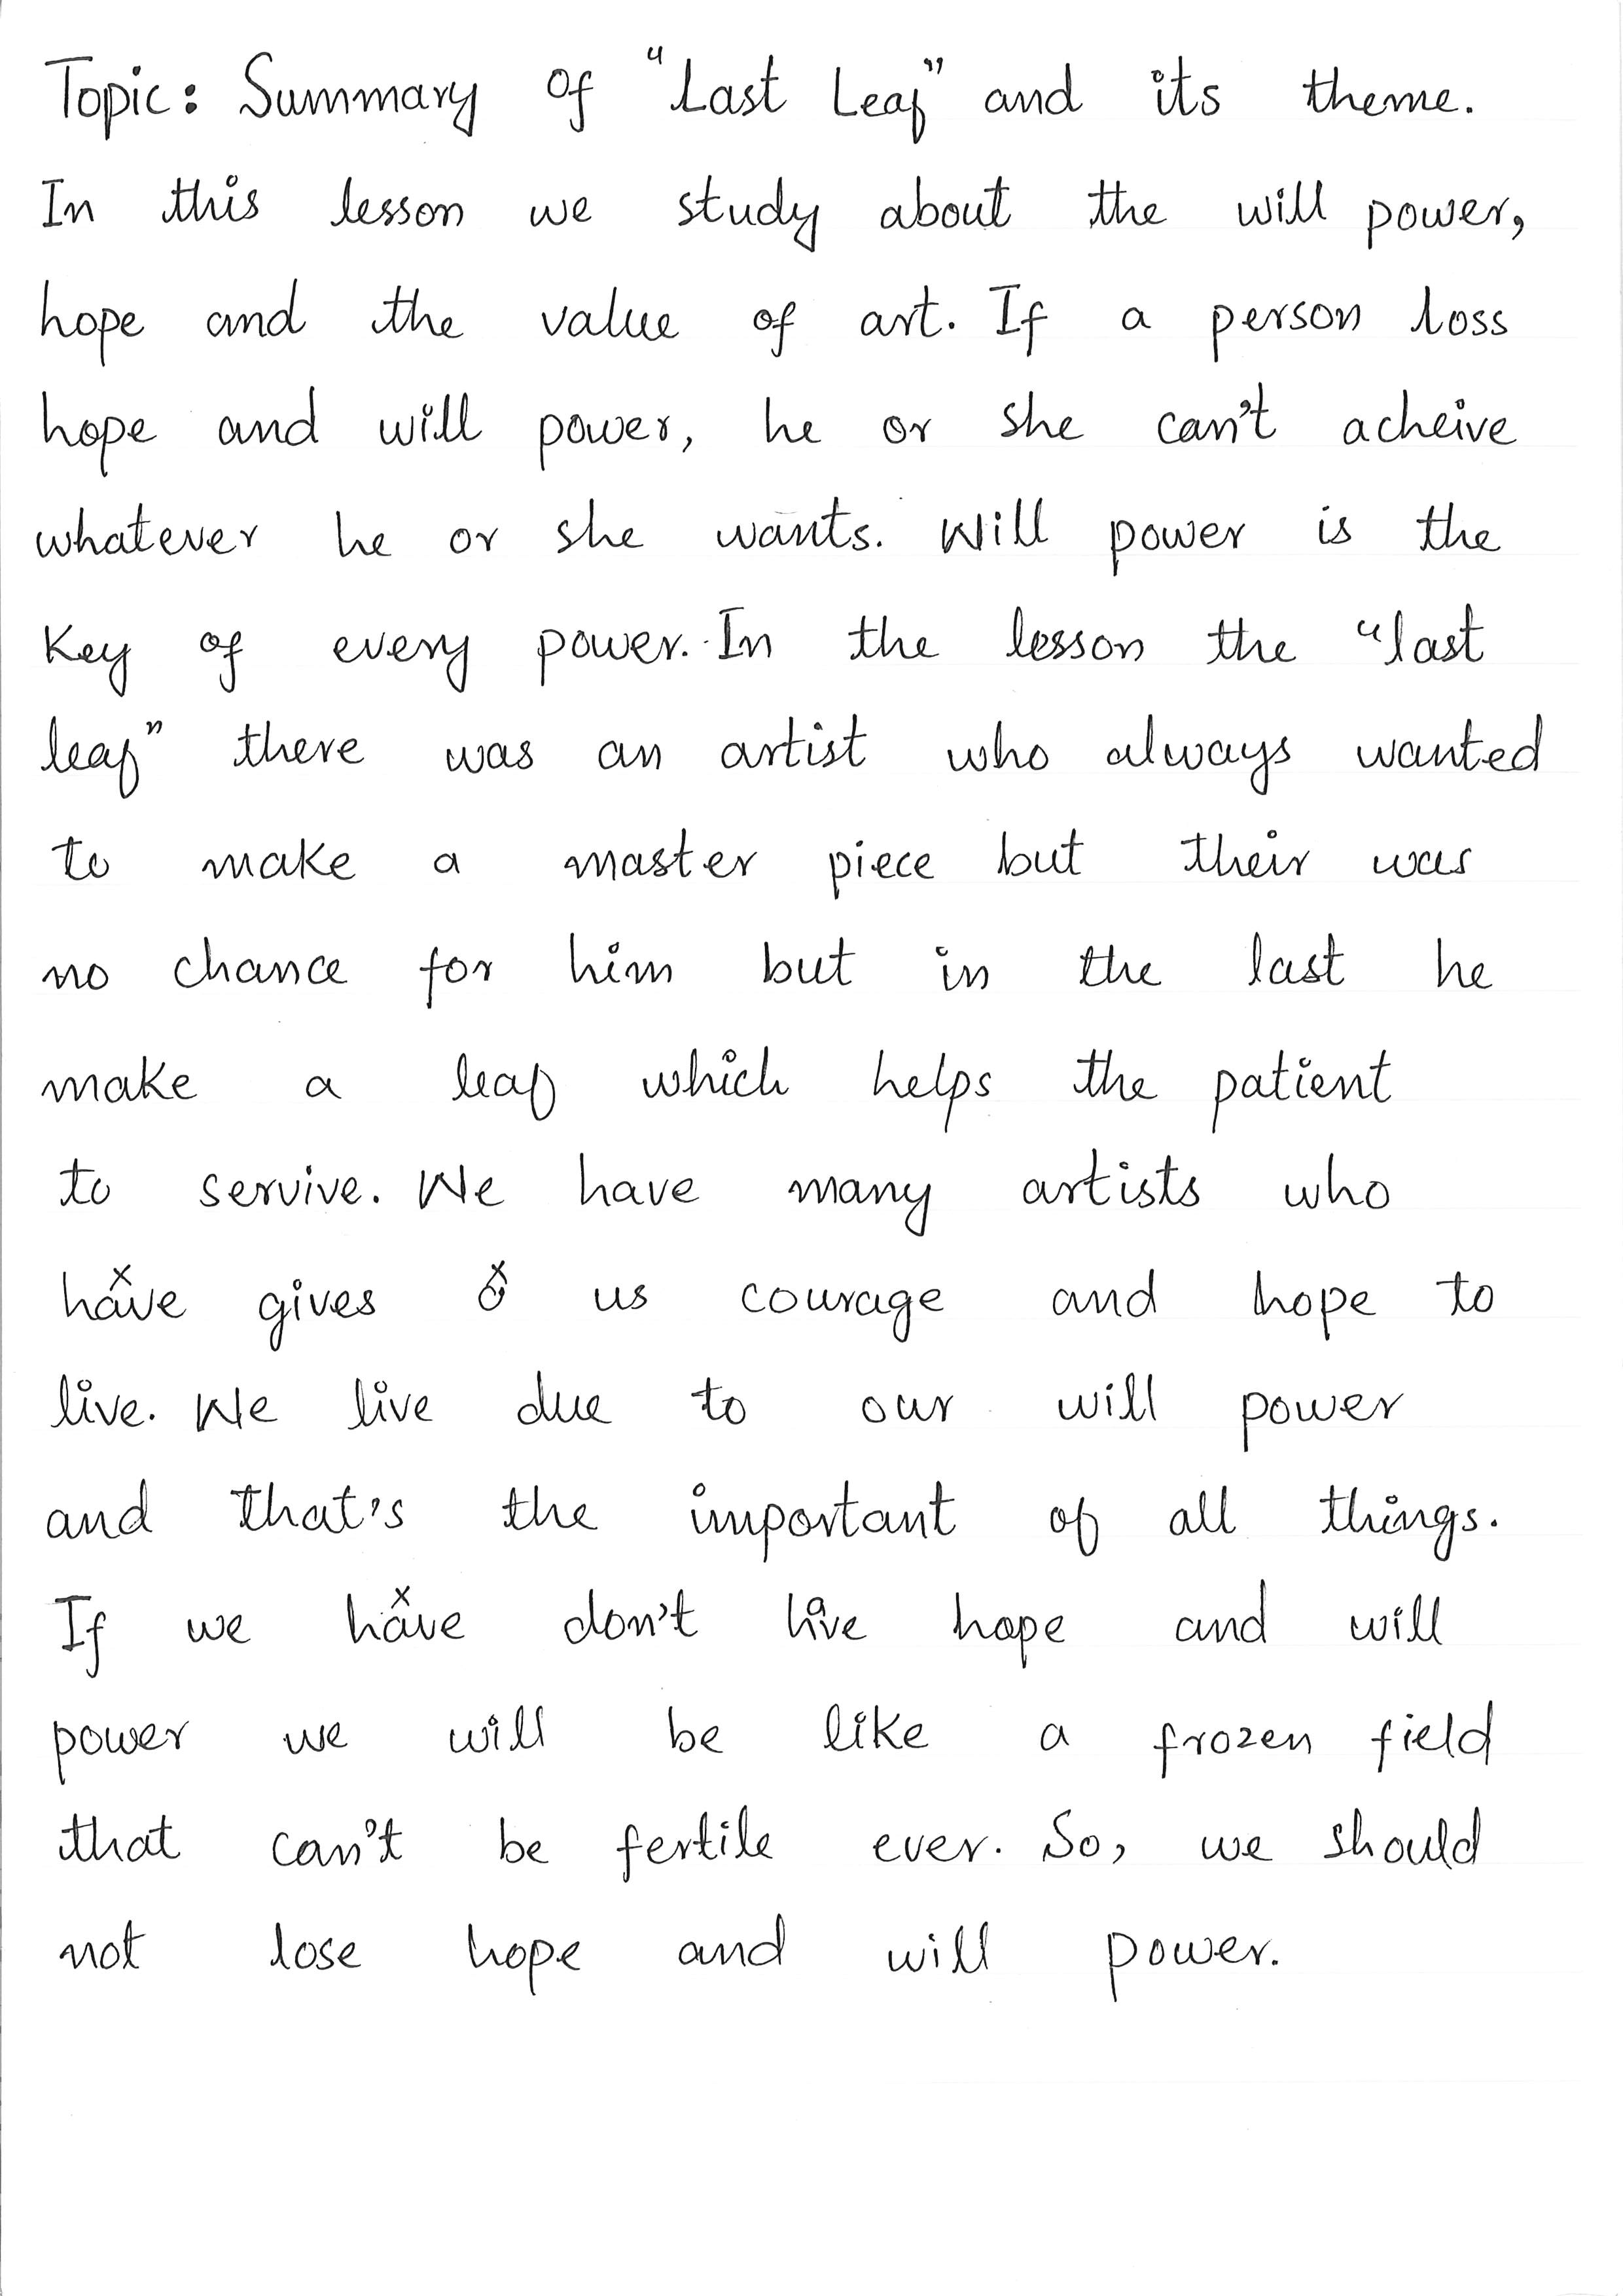 Topic: Summary Of "Last Leaf" and its theme.
In this lesson we study about the will power,
hope and the value of art. If a person loss
hope and will power, he or she can't acheive
whatever he or she wants. Will power is the
Key of every power. In the lesson the "last
leaf" there was an artist who always wanted
to make a master piece but their was
no chance for him but in the last he
make a leaf which helps the patient
to servive. We have many artists who
have gives us courage and hope to
live. We live due to our will power
and that's the important of all things.
If we have don't live hope and will
power we will be like a frozen field
that can't be fertile ever. So, we should
not lose hope and will power.